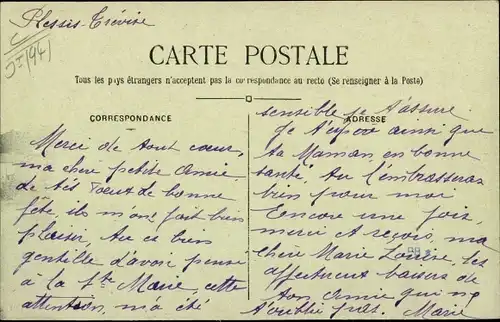 Plessis-Trévise
CARTE POSTALE
Tous les pays étrangers n'acceptent pas la correspondance au recto (Se renseigner à la Poste)
CORRESPONDANCE
Merci de tout cœur,
ma chère petite Amie
de tes vœux de bonne
fête, ils m'ont fait bien
plaisir, tu es bien
gentille d'avoir pensé
à la Ste Marie, cette
attention, m'a été
ADRESSE
sensible je t'assure.
Je t'espère ainsi que
ta Maman, en bonne
santé. Tu l'embrasseras
bien pour moi
Encore une fois
merci et reçois, ma
chère Marie Louise, les
affectueux baisers de
ton Amie qui ne
t'oublie pas. Marie